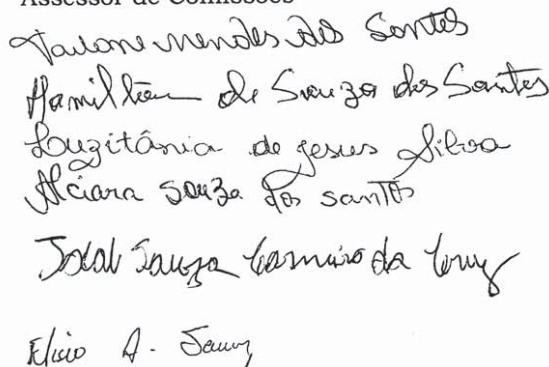 Assessor de Comissões
Taione Mendes dos Santos
Hamilton de Souza dos Santos
Luzitânia de Jesus Silva
Alciara Souza dos Santos
Souza da Cruz
Elisio A.